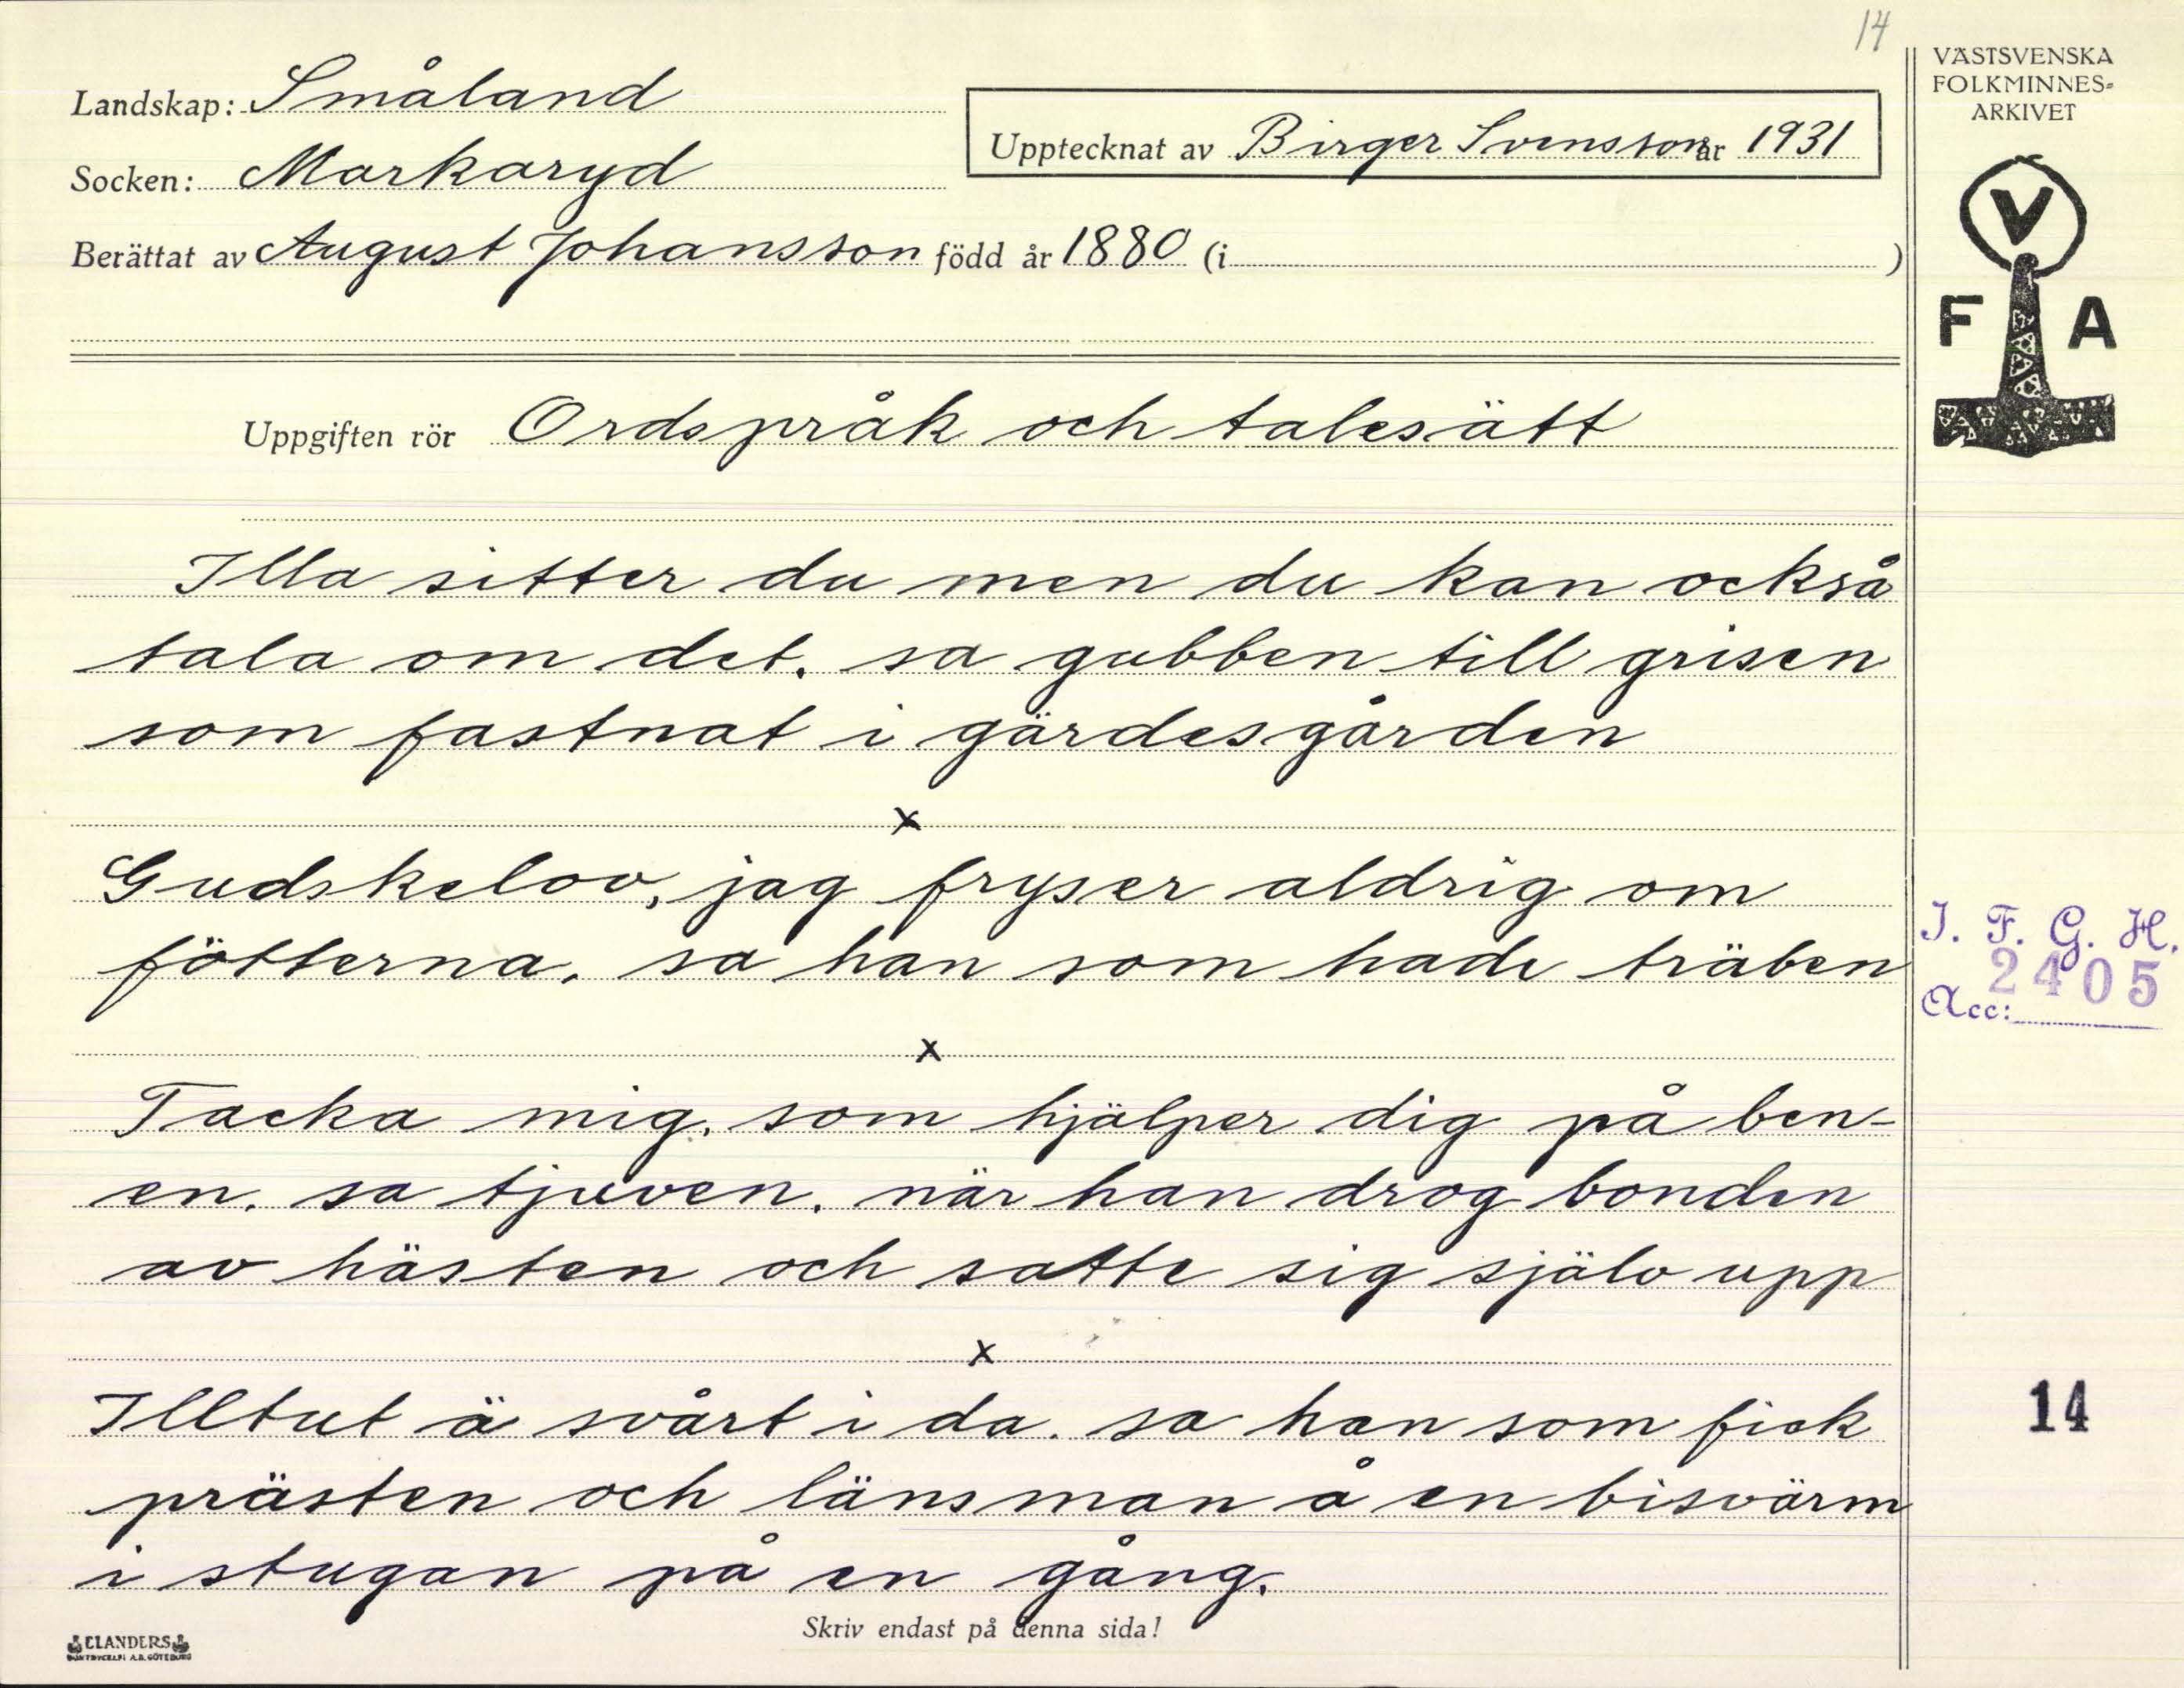 14
Landskap: Småland
Socken: Markaryd
Upptecknat av Birger Svensson år 1931
Berättat av August Johansson född år 1880 (i )
VÄSTSVENSKA
FOLKMINNES-
ARKIVET
V
F A
Uppgiften rör Ordspråk och talesätt
Illa sitter du men du kan också
tala om det, sa gubben till grisen
som fastnat i gärdesgården
x
Gudskelov, jag fryser aldrig om
fötterna, sa han som hade träben
x
Tacka mig, som hjälper dig på ben-
en, sa tjuven, när han drog bonden
av hästen och satte sig själv upp
x
Illtut ä svårt i da. sa han som fick
prästen och länsman å en bisvärm
i stugan på en gång.
I. F. G. H.
2405
Acc:
14
Skriv endast på denna sida!
ELANDERS
BOKTRYCKERI A.B. GÖTEBORG